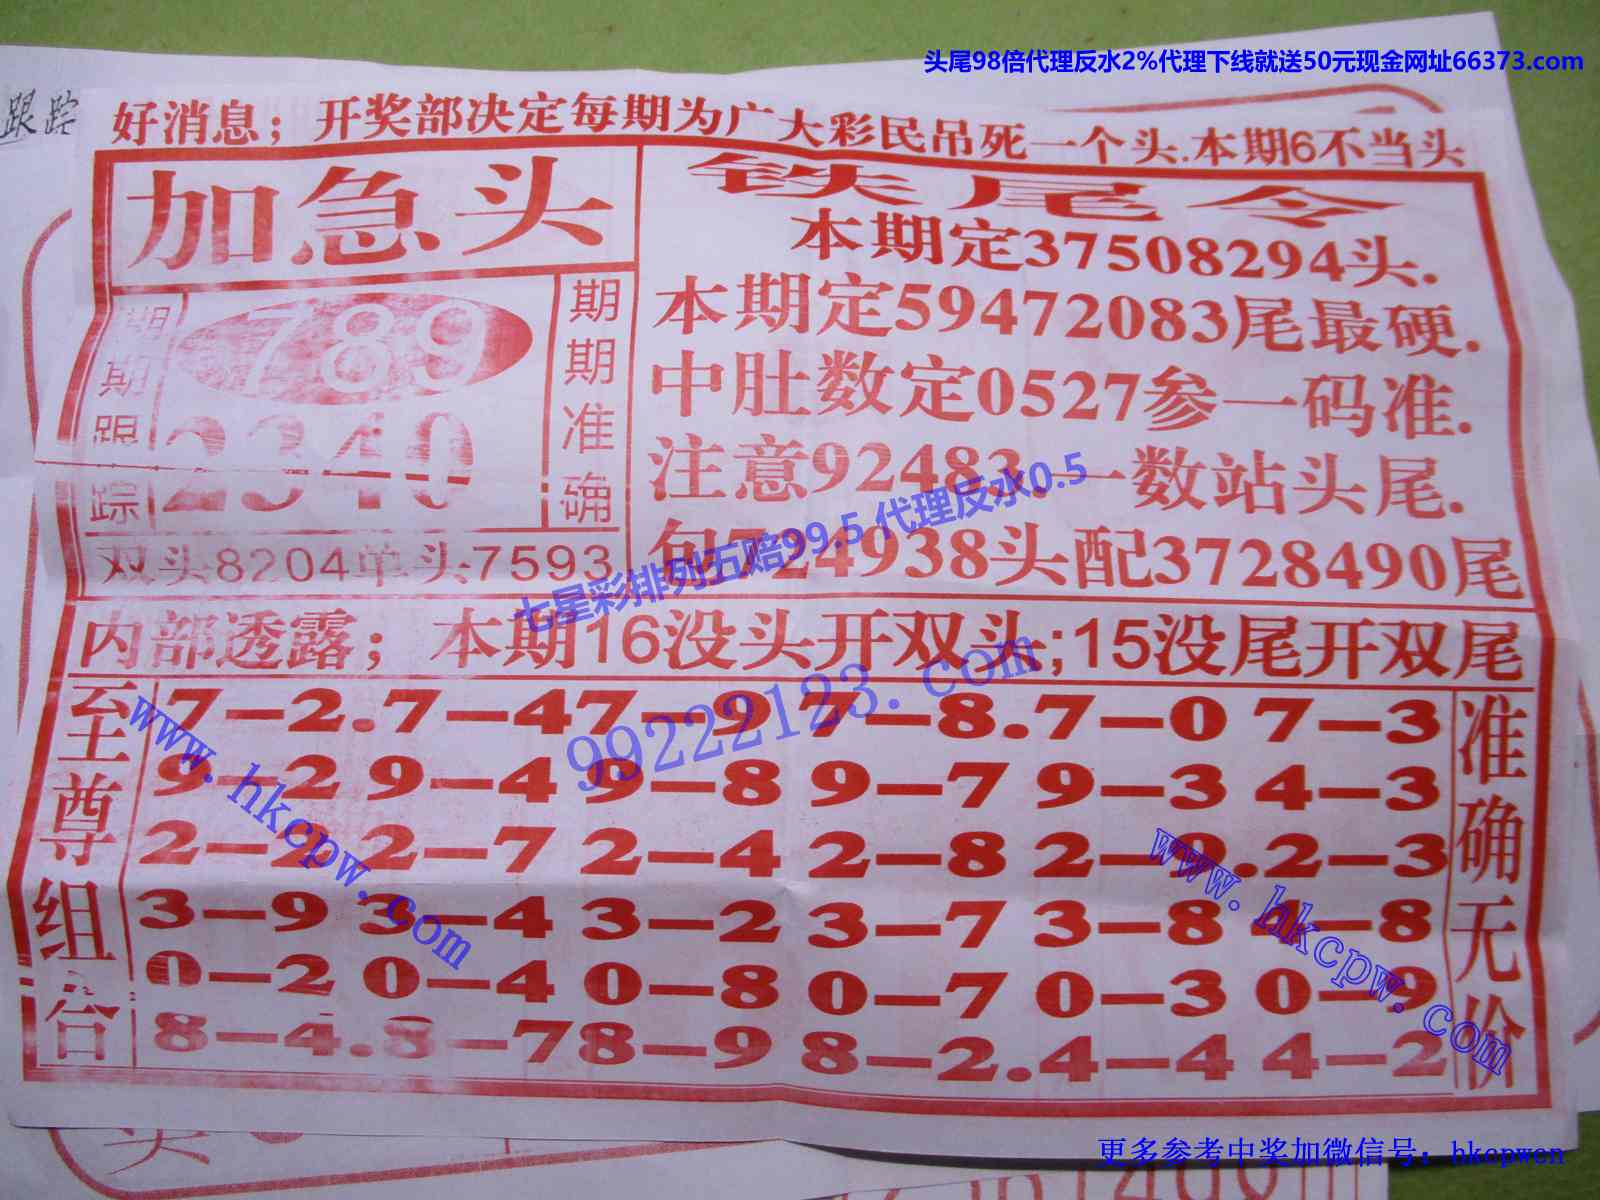 头尾98倍代理反水2%代理下线就送50元现金网址66373.com
跟踪
好消息；开奖部决定每期为广大彩民吊死一个头.本期6不当头
加急头
期期跟踪
789
2340
期期准确
双头8204单头7593
铁尾令
本期定37508294头.
本期定59472083尾最硬.
中肚数定0527参一码准.
注意92483.一数站头尾.
包5724938头配3728490尾
七星彩排列五赔99.5 代理反水0.5
内部透露；本期16没头开双头;15没尾开双尾
99222123.com
至尊组合
7—2.7—47—9 7—8.7—0 7—3
9—2 9—4 9—8 9—7 9—3 4—3
2—2 2—7 2—4 2—8 2—9.2—3
3—9 3—4 3—2 3—7 3—8 4—8
0—2 0—4 0—8 0—7 0—3 0—9
8—4.8—78—9 8—2.4—4 4—2
准确无价
www.hkcpw.com
www.hkcpw.com
头
更多参考中奖加微信号：hkcpwcn